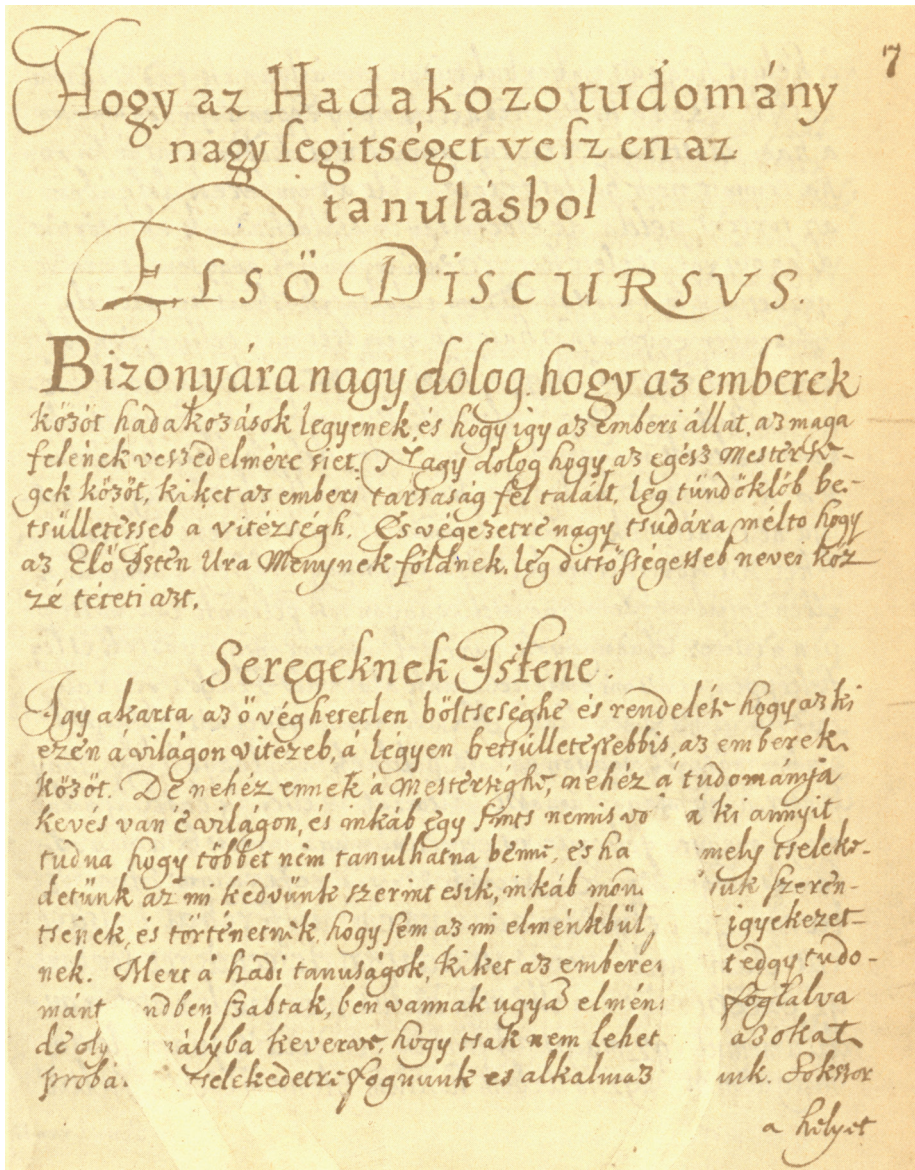 7
Hogy az Hadakozo tudomány
nagy segitséget veszen az
tanulásbol
Elsö Discursvs.
Bizonyára nagy dolog, hogy az emberek
közöt hadakozások legyenek, és hogy igy az emberi állat, az maga
felének veszedelmére siet. Nagy dolog hogy, az egész mesterse-
gek közöt, kiket az emberi tarsaság fel talált, leg tündöklöb be-
tsülletesseb a vitézségh. Es végezetre nagy tsudára mélto hogy
az Elö Isten Ura Menynek földnek, leg ditsösségesseb nevei köz
zé téteti azt.
Seregeknek Istene.
Igy akarta az ö véghetetlen böltseséghe és rendelék hogy az ki
ezén á világon vitézeb, á légyen betsülletessebbis, az emberek
közöt. De nehéz ennek á mesterséghe, nehéz á tudománja
kevés van é világon, és inkáb egy sints nemis vo á ki annyit
tudna hogy többet nem tanulhatna benne, és ha mely tseleke-
detünk az mi kedvünk szerint esik, inkáb mon uk szeren-
tsének, és történetnek, hogy sem az mi elménkbül, igyekezet-
nek. Mert á hadi tanuságok, kiket az embere t edgy tudo-
mánt ndben szabtak, ben vannak ugyā elmén foglalva
de oly mályba kevervе, hogy tsak nem lehet azokat
probá tselekedetre fognunk es alkalmaz unk. Sokszor
a helyet